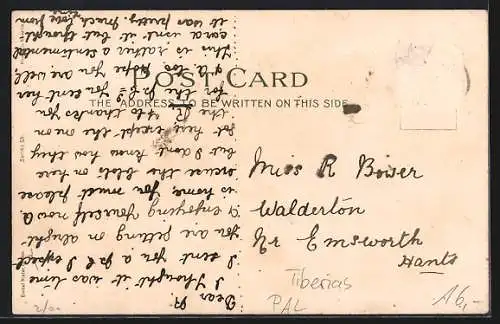 POST CARD
THE ADDRESS TO BE WRITTEN ON THIS SIDE
Dear R
I Thought it was time
I sent you a P.C. I expect
you are getting on alright
& enjoying yourself now R
is home, you must please
excuse the blots on here
but I dont know how they
got here except the one on
the R. to thank you
for the P.C. you sent her
hope you are well
This is rather a sentimental
card isnt it but I thought
it was pretty. Much love from
Miss R Bowser
Walderton
Nr Emsworth
Hants
Tiberias
PAL
16,-